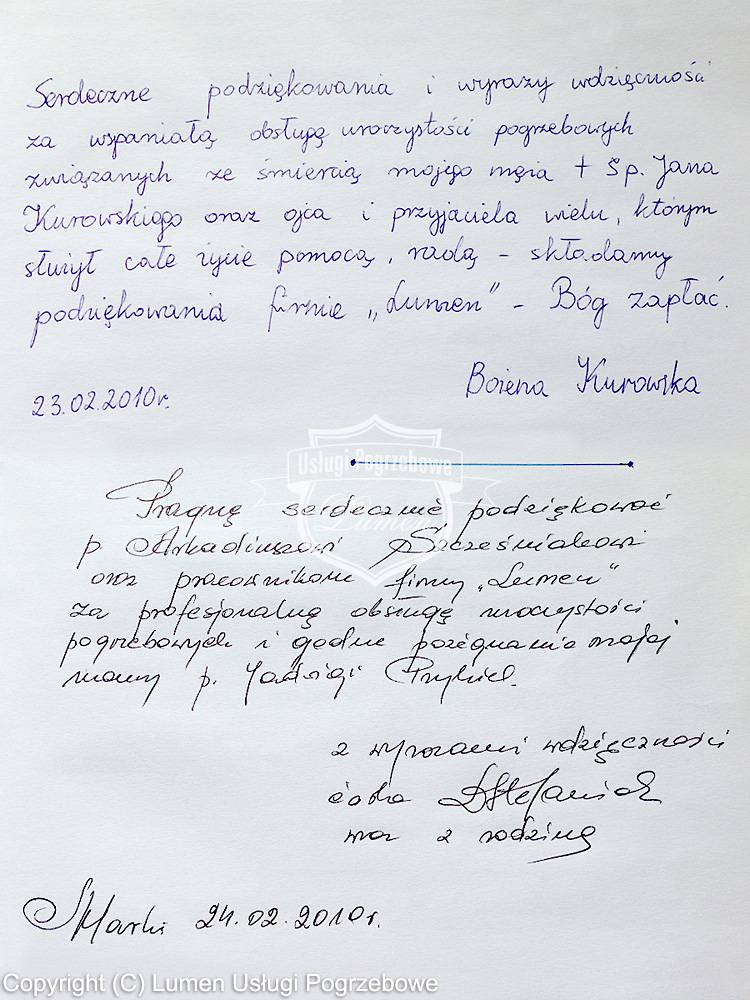 Serdeczne podziękowania i wyrazy wdzięczność
za wspaniałą obsługę uroczystości pogrzebowych
związanych ze śmiercią mojego męża + Ś p. Jana
Kurowskiego oraz ojca i przyjaciela wielu, którym
służył całe życie pomocą, radą - składamy
podziękowania firmie „Lumen" - Bóg zapłać.
Bożena Kurowska
23.02.2010r.
Usługi Pogrzebowe
Lumen
Pragnę serdecznie podziękować
p. Arkadiuszowi Szcześniakowi
oraz pracownikom firmy „Lumen"
za profesjonalną obsługę uroczystości
pogrzebowych i godne pożegnanie mojej
mamy p. Jadwigi
z wyrazami wdzięczności
córka
wraz z rodziną
Marki 24.02.2010r.
Copyright (C) Lumen Usługi Pogrzebowe